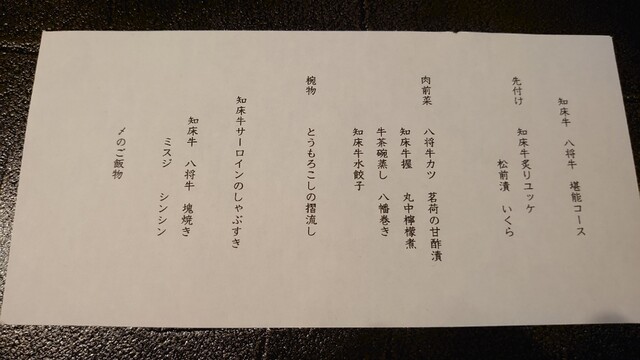 知床牛 八将牛 堪能コース
先付け 知床牛炙りユッケ
松前漬 いくら
肉前菜 八将牛カツ 茗荷の甘酢漬
知床牛握 丸中檸檬煮
牛茶碗蒸し 八幡巻き
知床牛水餃子
椀物 とうもろこしの摺流し
知床牛サーロインのしゃぶすき
知床牛 八将牛 塊焼き
ミスジ シンシン
〆のご飯物